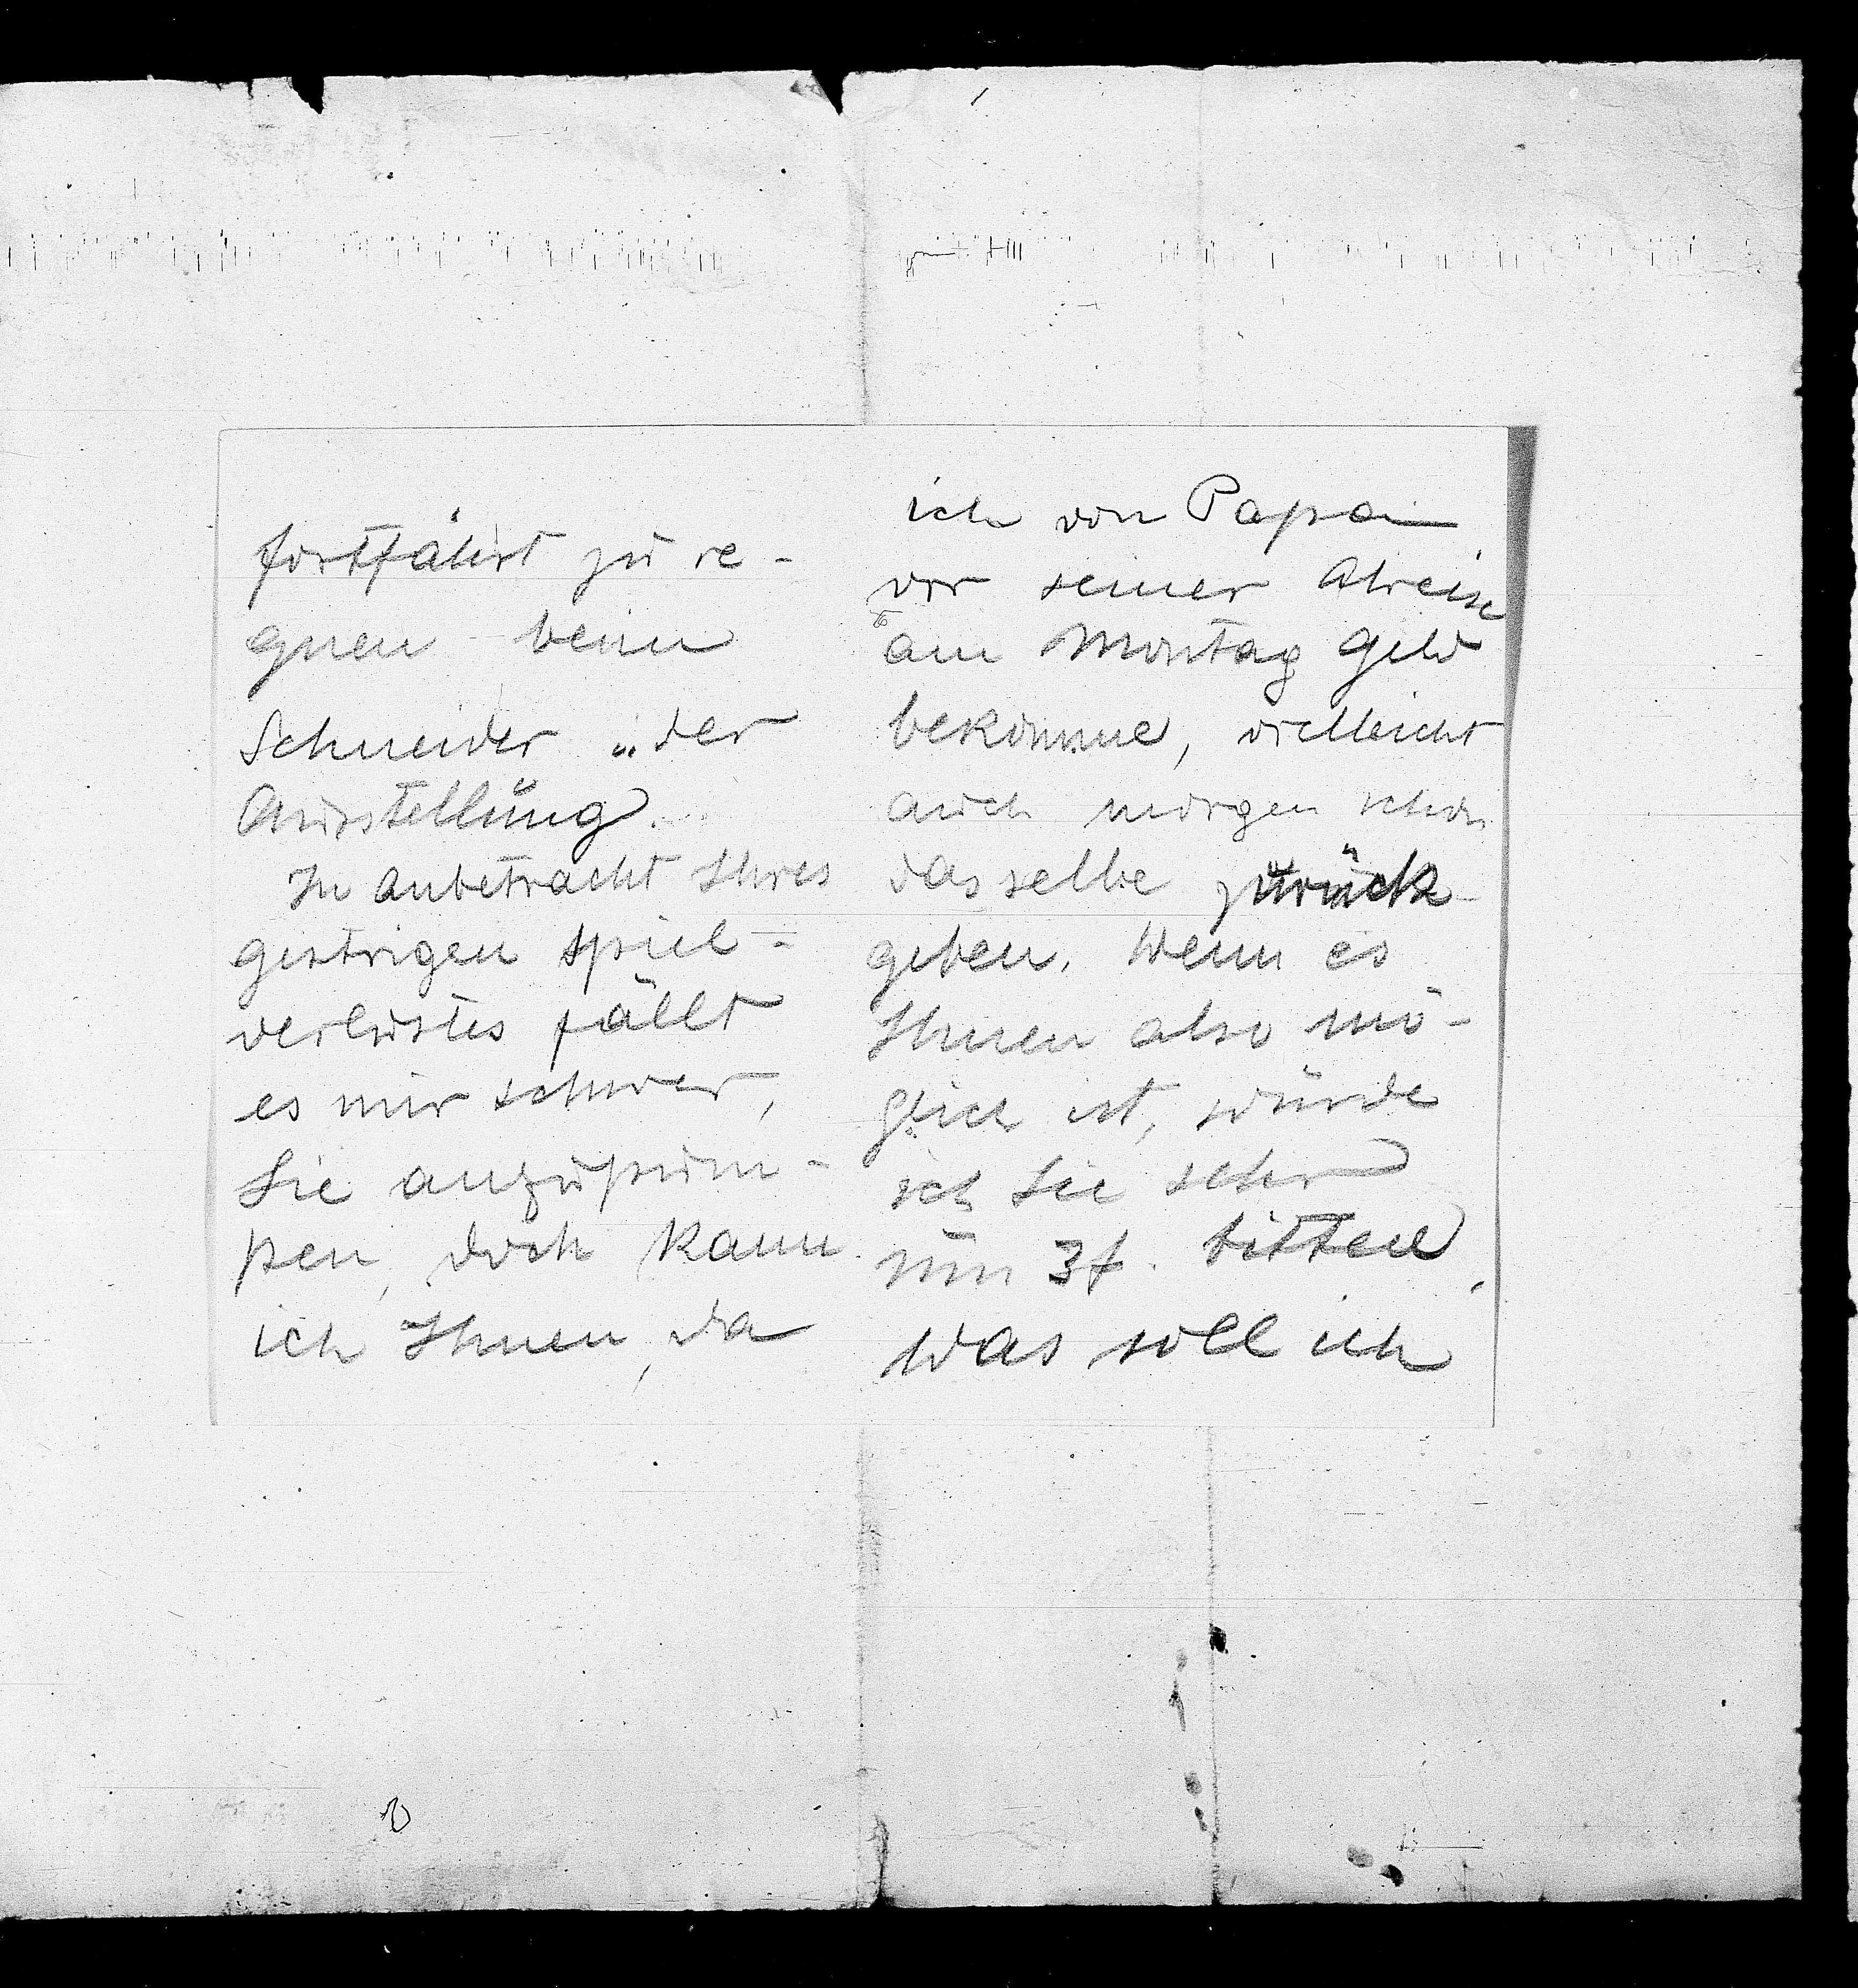 fortfährt zu re-
gnen beim
Schneider u. der
Ausstellung.
In Anbetracht Ihres
gestrigen Spiel-
verlustes fällt
es mir schwer,
Sie anzupum-
pen, doch kann
ich Ihnen, da
ich von Papa
vor seiner Abreise
am Montag Geld
bekomme, vielleicht
auch morgen schon
dasselbe zurück-
geben. Wenn es
Ihnen also mö-
glich ist, würde
ich Sie sehr
um 3 f. bitten.
Was soll ich